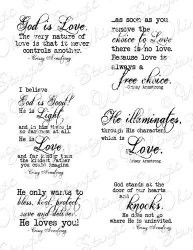 God is Love.
The very nature of
love is that it never
controls another.
Craig Armstrong
..as soon as you
remove the
choice to Love
there is no love.
Because love is
always a
free choice.
Craig Armstrong
I believe
God is Good!
He is
Light
and in Him there is
no darkness at all.
He is
Love.
and far kinder than
the kindest Father
you could imagine
Craig Armstrong
He illuminates,
through His character
which is
Love.
Craig Armstrong
He only wants to
bless, heal, protect,
save and deliver.
He loves you!
Craig Armstrong
God stands at the
door of our hearts
and
knocks.
He does not go
where He is uninvited.
Craig Armstrong